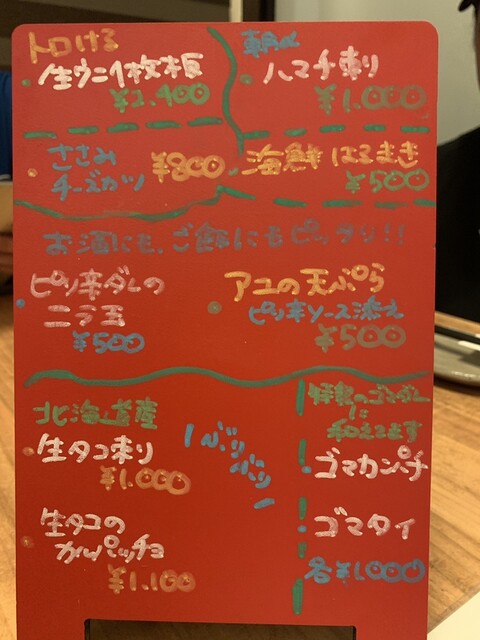 トロける
生ウニ1枚板
¥2,400
朝〆
ハマチ刺り
¥1,000
ささみ
チーズカツ
¥800
海鮮はるまき
¥500
お酒にも、ご飯にもピッタリ!!
ピリ辛ダレの
ニラ玉
¥500
アユの天ぷら
ピリ辛ソース添え
¥500
北海道産
生タコ刺り
¥1,000
生タコの
カルパッチョ
¥1,100
ぶりぶり
に
和えてます
ゴマカンパチ
ゴマタイ
各¥1,000